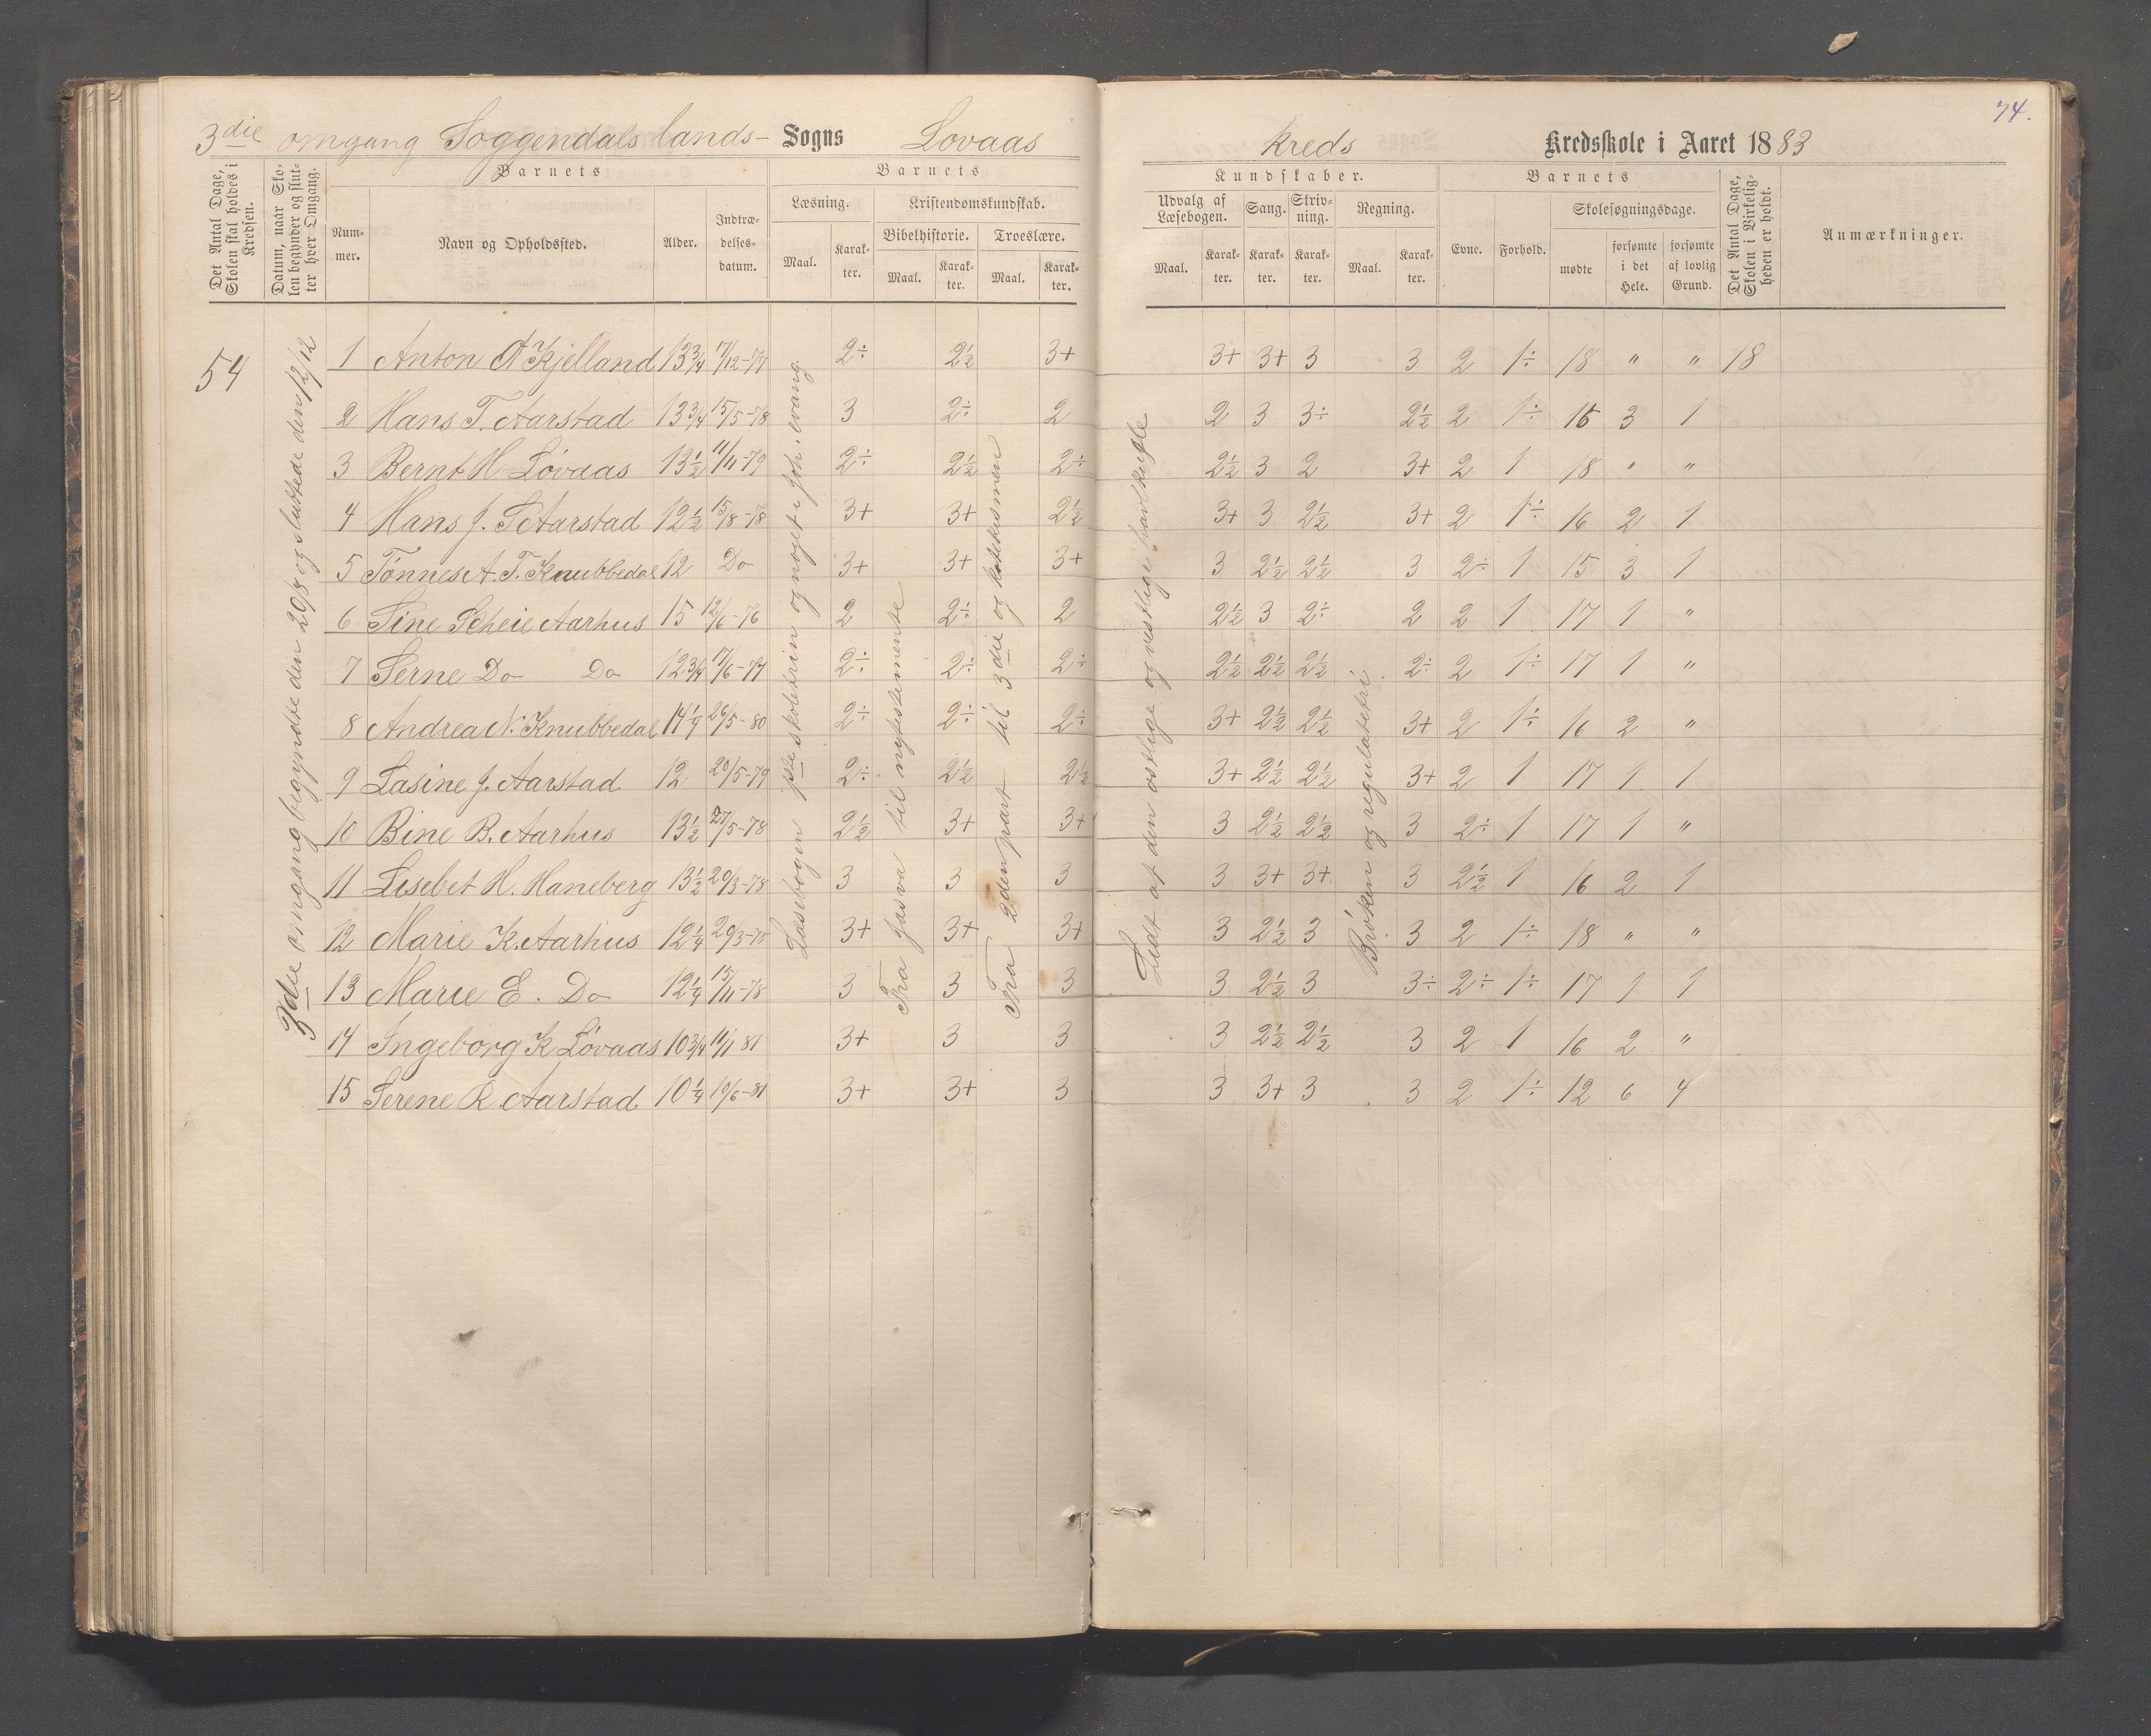 74.
3die omgang Soggendals lands- Sogns Lovaas kreds Kredsskole i Aaret 1883
Det Antal Dage, Skolen skal holdes i Kredsen.
Datum, naar Skolen begynder og slutter hver Omgang.
Barnets
Nummer.
Navn og Opholdssted.
Alder.
Indtrædelsesdatum.
Barnets
Læsning.
Maal.
Karakter.
Kristendomskundskab.
Bibelhistorie.
Maal.
Karakter.
Troeslære.
Maal.
Karakter.
Kundskaber.
Udvalg af Læsebogen.
Maal.
Karakter.
Sang.
Karakter.
Skrivning.
Karakter.
Regning.
Maal.
Karakter.
Barnets
Evne.
Forhold.
Skolesøgningsdage.
mødte
forsømte i det Hele.
forsømte af lovlig Grund.
Det Antal Dage, Skolen i Virkeligheden er holdt.
Anmærkninger.
54
3die omgang begyndte den 20/8 og sluttede den 12/12
Læsebogen 1ste skoletrin og noget i Joh. evang.
Fra Josva til nytestemente
Fra 2den part til 3die og katekismen
Lidt af den østlige og vestlige halvkugle
Brøken og regulatetri
1 Anton A Kjelland 13 3/4 17/12-77 2÷ 2½ 3+ 3+ 3+ 3 3 2 1÷ 18 " " 18
2 Hans T. Aarstad 13 3/4 15/5-78 3 2÷ 2 2 3 3÷ 2½ 2 1÷ 15 3 1
3 Bernt H Løvaas 13½ 11/11-79 2÷ 2½ 2÷ 2½ 3 2 3+ 2 1 18 " "
4 Hans J. S Aarstad 12½ 15/8-78 3+ 3+ 2½ 3+ 3 2½ 3+ 2 1÷ 16 2 1
5 Tønnes A. T. Knubbedal 12 Do 3+ 3+ 3+ 3 2½ 2½ 3 2÷ 1 15 3 1
6 Sine Scheie Aarhus 15 12/6-76 2 2÷ 2 2½ 3 2÷ 2 2 1 17 1 "
7 Serne Do Do 12 3/4 17/6-77 2÷ 2÷ 2÷ 2½ 2½ 2½ 2÷ 2 1÷ 17 1 "
8 Andrea N. Knubbedal 14¼ 26/5-80 2÷ 2÷ 2÷ 3+ 2½ 2½ 3+ 2 1÷ 16 2 "
9 Lasine J. Aarstad 12 20/5-79 2÷ 2½ 2½ 3+ 2½ 2½ 3+ 2 1 17 1 1
10 Bine B. Aarhus 13½ 27/5-78 2½ 3+ 3+ 3 2½ 2½ 3 2÷ 1 17 1 "
11 Lisebet H. Haneberg 13½ 20/3-78 3 3 3 3 3+ 3+ 3 2½ 1 16 2 1
12 Marie K. Aarhus 12¼ 20/3-78 3+ 3+ 3+ 3 2½ 3 3 2 1÷ 18 " "
13 Marie E. Do 12¼ 15/11-78 3 3 3 3 2½ 3 3÷ 2÷ 1÷ 17 1 1
14 Ingeborg K Løvaas 10 3/4 11/1 81 3+ 3 3 3 2½ 2½ 3 2 1 16 2 "
15 Serene R Aarstad 10¼ 10/6-81 3+ 3+ 3 3 3+ 3 3 2 1÷ 12 6 4